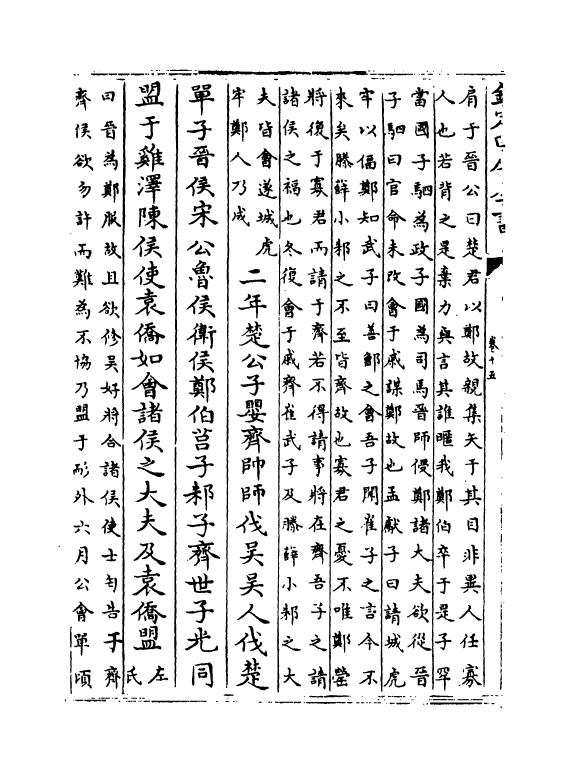 卷十五
肩于晉公曰楚君以鄭故親集矢于其目非異人任寡
人也若背之是棄力與言其誰暱我鄭伯卒于是子罕
當國子駟為政子國為司馬晉師侵鄭諸大夫欲從晉
子駟曰官命未改會于戚謀鄭故也孟獻子曰請城虎
牢以偪鄭知武子曰善鄫之會吾子聞崔子之言今不
來矣滕薛小邾之不至皆齊故也寡君之憂不唯鄭罃
將復于寡君而請于齊若不得請事將在齊吾子之請
諸侯之福也冬復會于戚齊崔武子及滕薛小邾之大
夫皆會遂城虎
牢鄭人乃成
二年楚公子嬰齊帥師伐吳吳人伐楚
單子晉侯宋公魯侯衛侯鄭伯莒子邾子齊世子光同
盟于雞澤陳侯使袁僑如會諸侯之大夫及袁僑盟
左
氏
曰晉為鄭服故且欲修吳好將合諸侯使士匄告于齊
齊侯欲勿許而難為不協乃盟于耏外六月公會單頃